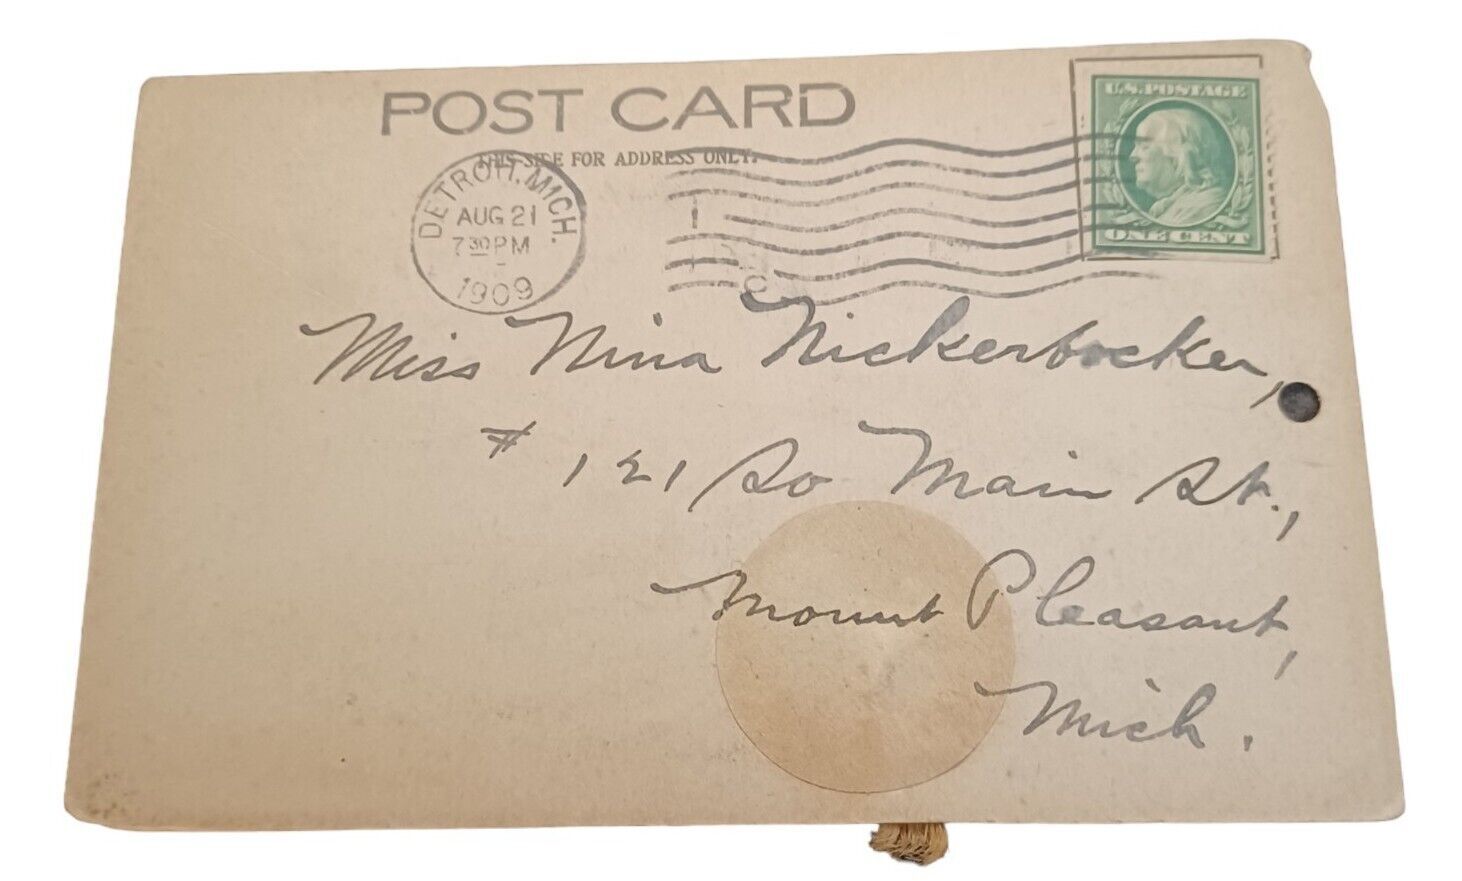 POST CARD
THIS SIDE FOR ADDRESS ONLY.
U.S. POSTAGE
ONE CENT
DETROIT, MICH.
AUG 21
7 30 PM
1909
Miss Nina Nickerbocker,
# 121 So Main St.,
Mount Pleasant,
Mich.